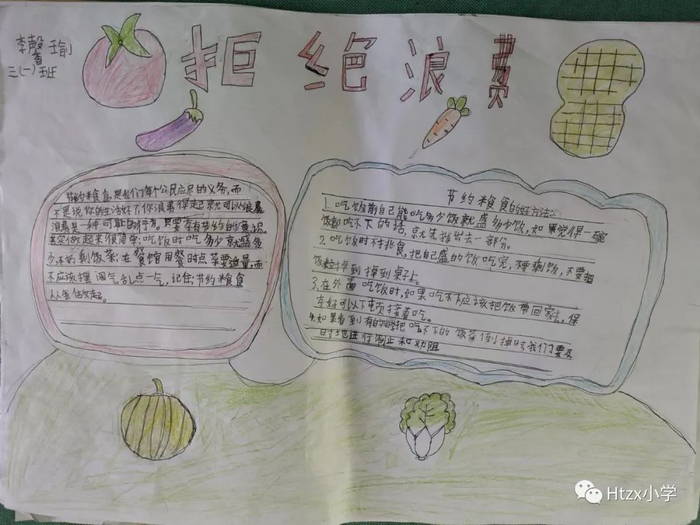 李馨瑜
三(一)班
拒绝浪费
节约粮食,是我们每个公民应尽的义务,而
不是说你的生活好了,你浪费得起就可以浪费
浪费是一种可耻的行为。只要存有节约的意识,
其实做起来很简单:吃饭时吃多少就盛多
少,不剩饭菜;在餐馆用餐时点菜要适量,而
不应该摆阔气,乱点一气,记住:节约粮食
从我做起。
节约粮食的好方法:
1.吃饭前自己能吃多少饭就盛多少饭,如果觉得一碗
饭吃不下的话,就先拨出去一部分。
2.吃饭时不挑食,把自己盛的饭吃完,不剩饭,不要把
饭粒掉到掉到桌上。
3.在外面吃饭时,如果吃不下应该把饭带回家,保
存好可以下顿接着吃。
4.如果看到有的同学把吃不下的饭菜倒掉时我们要
进行制止和劝阻
Htzx小学